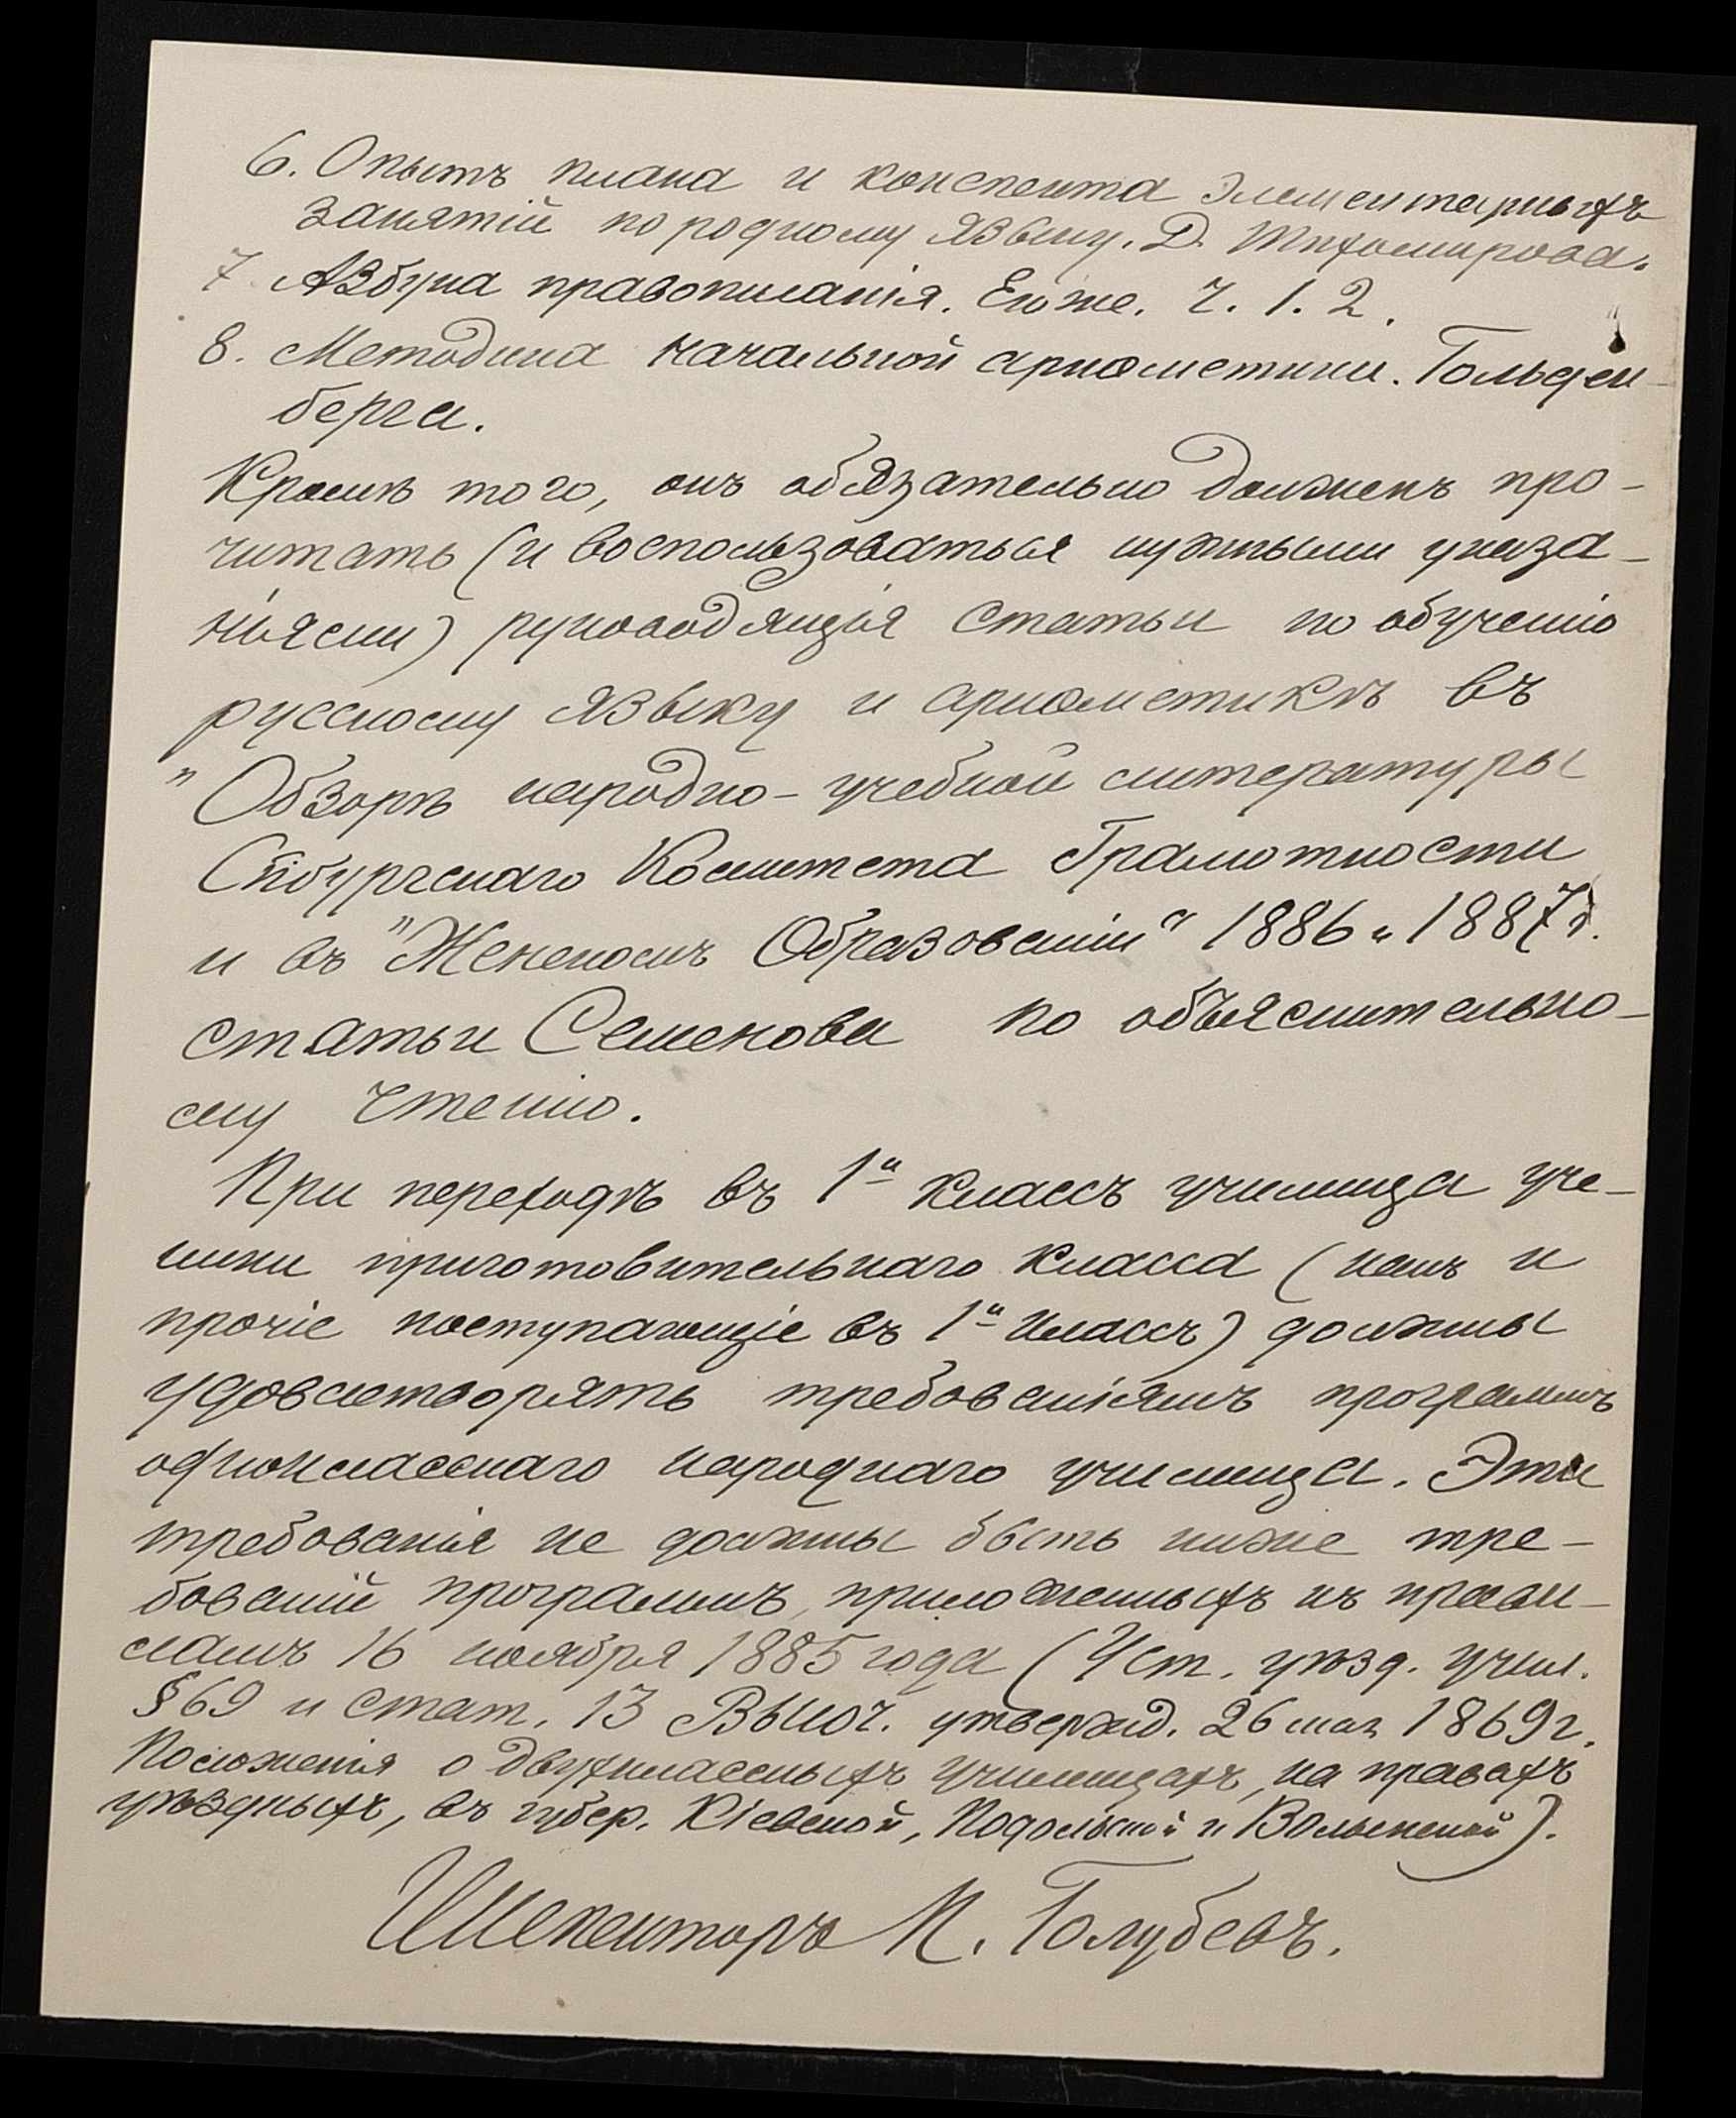 6. Опытъ плана и конспекта элементарныхъ
занятій по родному языку. Д. Тихомирова.
7. Азбука правописанія. Его же. Ч. 1. 2.
8. Методика начальной ариѳметики. Гольден-
берга.
Кромѣ того, онъ обязательно долженъ про-
читать (и воспользоваться нужными указа-
ніями) руководящія статьи по обученію
русскому языку и ариѳметикѣ въ
"Обзорѣ народно-учебной литературы
Спбургскаго Комитета Грамотности
и въ "Женскомъ Образованіи" 1886 и 1887 г.
статьи Семенова по объяснительно-
му чтенію.
При переходѣ въ 1й классъ училища уче-
ники приготовительнаго класса (какъ и
прочіе поступающіе въ 1й классъ) должны
удовлетворять требованіямъ программъ
одноклассного народнаго училища. Эти
требованія не должны быть ниже тре-
бованій программъ, приложенныхъ къ прави-
ламъ 16 ноября 1885 года (Уст. уѣзд. учил.
§69 и стат. 13 Высоч. утвержд. 26 мая 1869 г.
Положенія о двухклассныхъ училищахъ, на правахъ
уѣздныхъ, въ губер. Кіевской, Подольской и Волынской).
Инспекторъ М. Голубевъ.